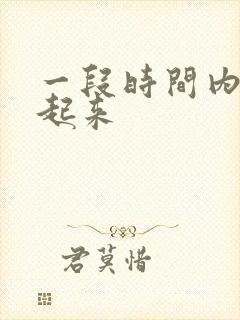 一段時間內
起来
君莫惜